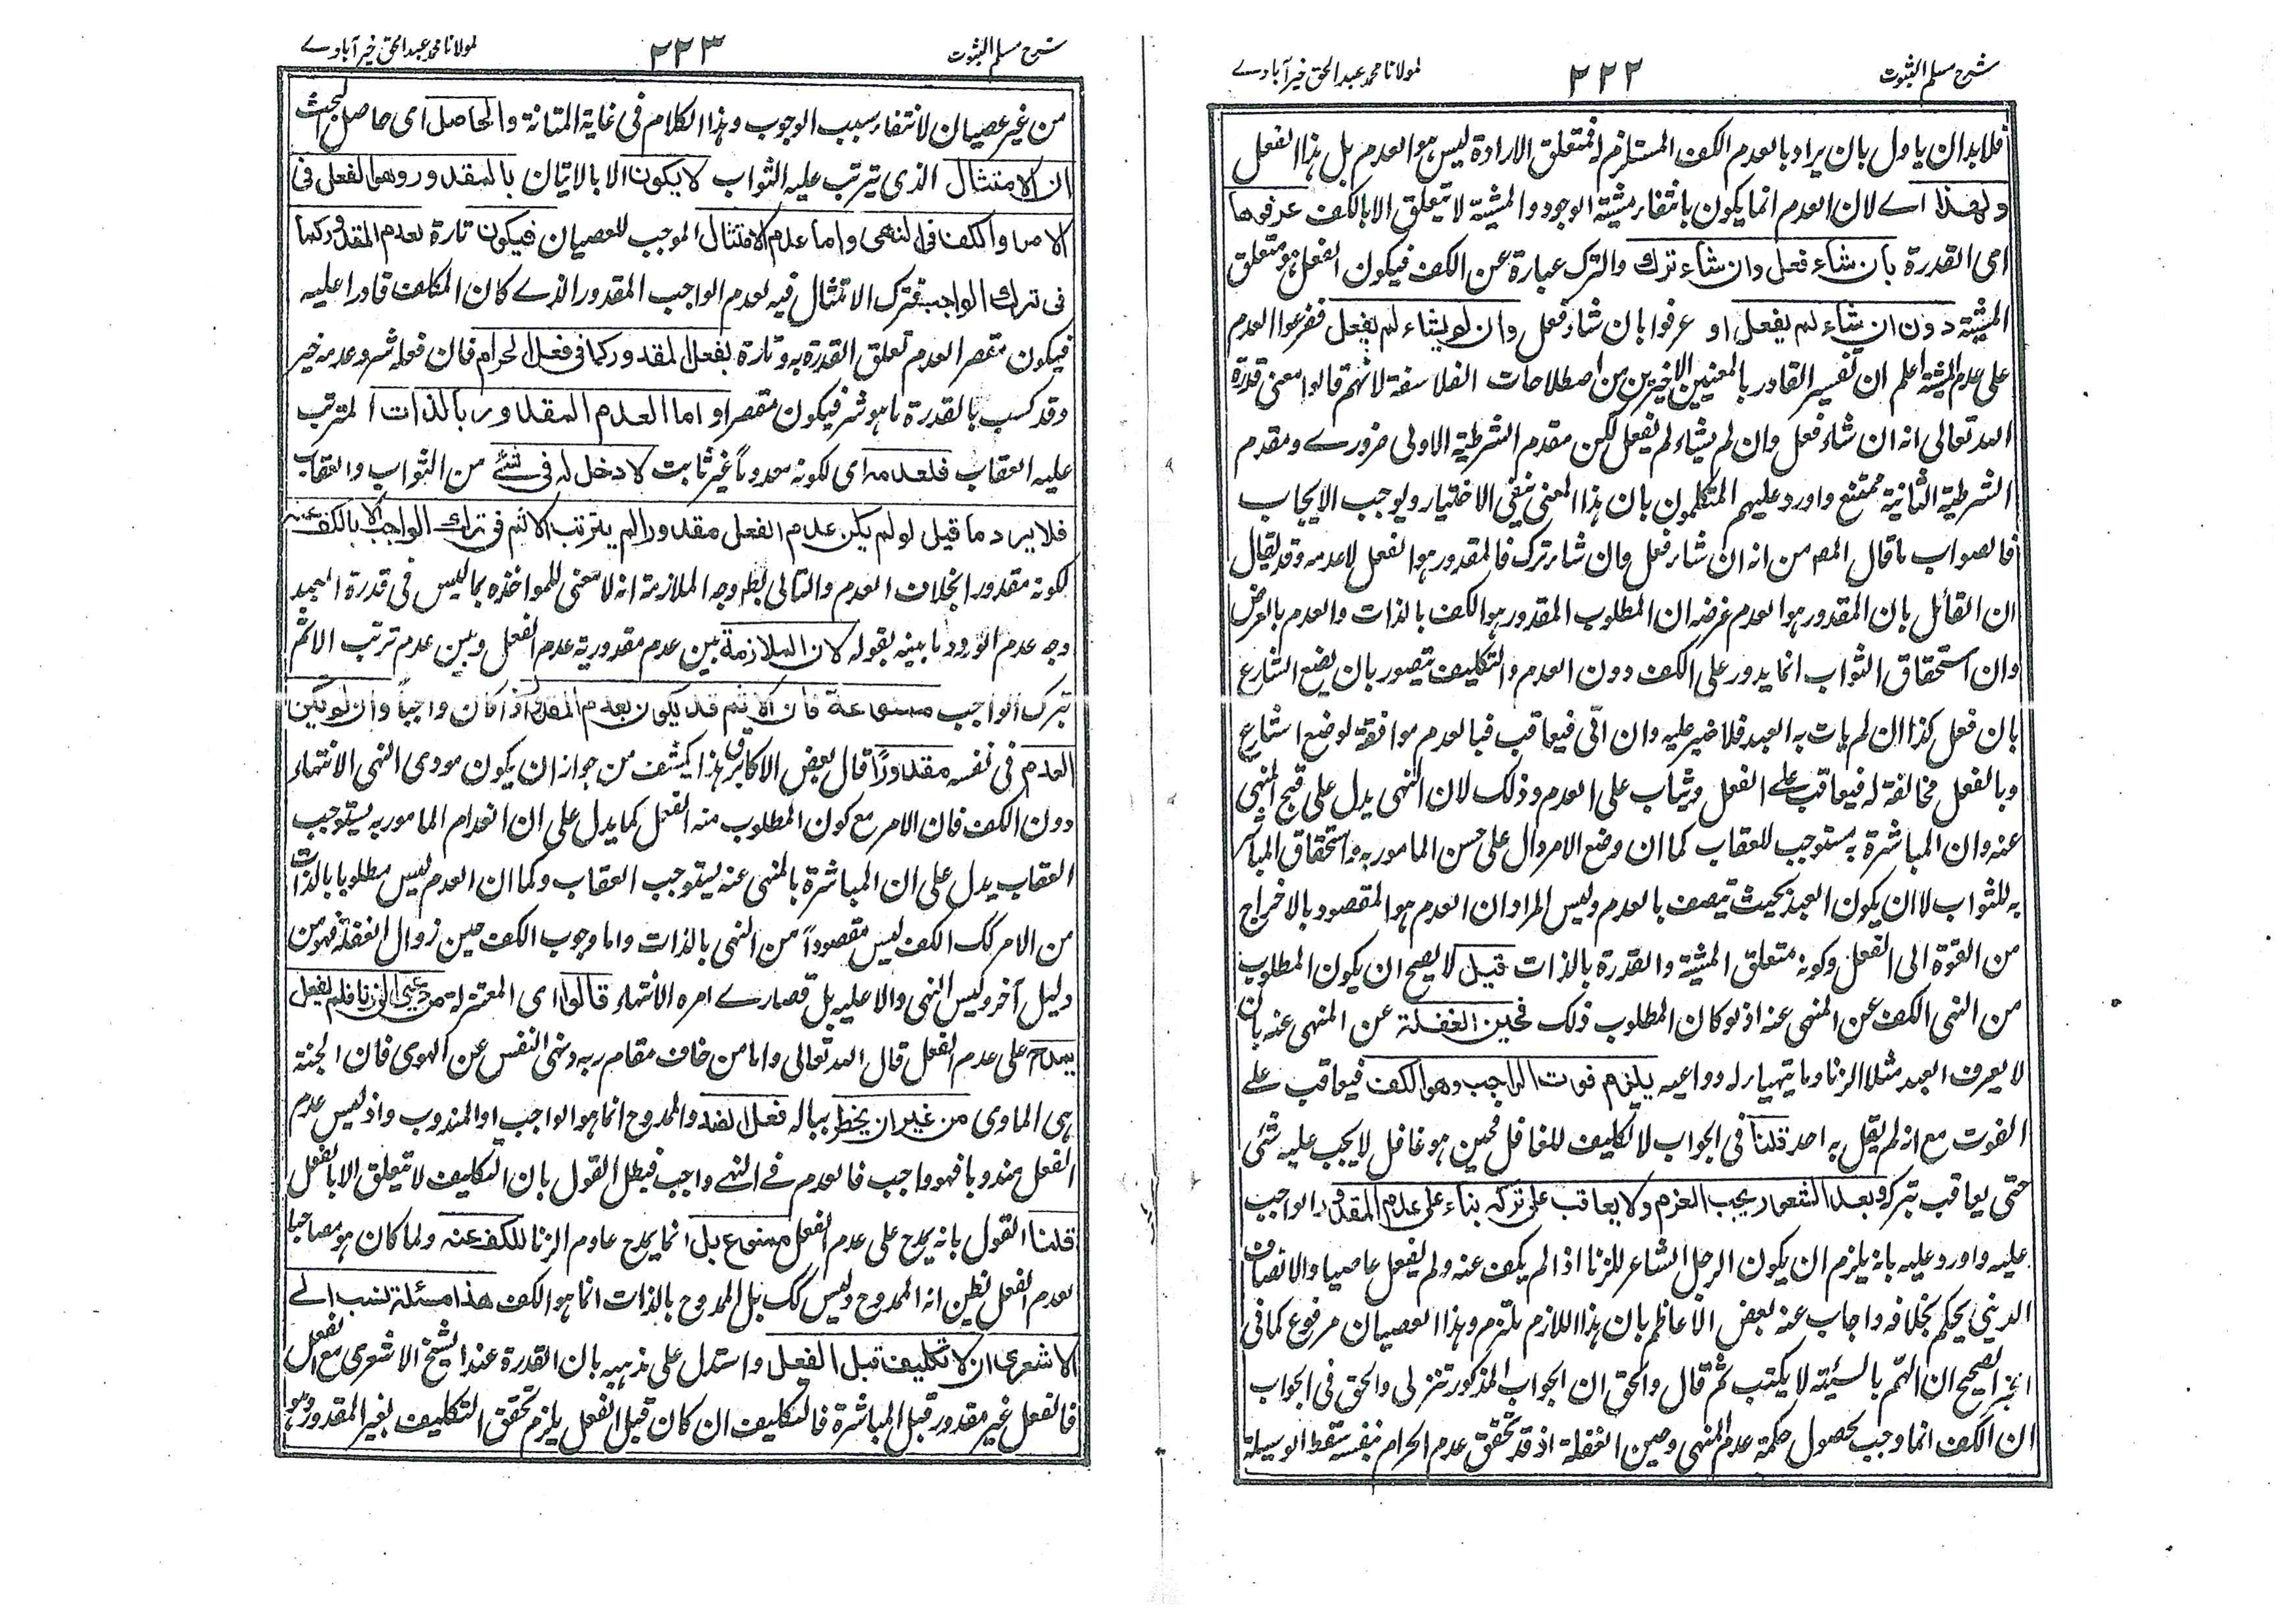 شرح مسلم الثبوت
٢٢٢
لمولانا محمد عبدالحق خیرآبادے
فلا بد ان یاول بان یراد بالعدم الکف المستلزم له فمتعلق الارادة لیس هو العدم بل هذا الفعل
ولهذا اے لان العدم انما یکون بانتفاء مشیة الوجود والمشیة لا تتعلق الا بالکف عرفوها
ای القدرة بان شاء فعل وان شاء ترك والترک عبارة عن الکف فیکون الفعل هو متعلق
المشیة دون ان شاء لم یفعل او عرفوا بان شاء فعل وان لم یشاء لم یفعل ففرعوا العدم
علی عدم المشیة اعلم ان تفسیر القادر بالمعنیین الاخیرین من اصطلاحات الفلاسفة لانهم قالوا معنی قدرة
الله تعالی انه ان شاء فعل وان لم یشاء لم یفعل لکن مقدم الشرطیة الاولی ضرورے ومقدم
الشرطیة الثانیة ممتنع واورد علیهم المتکلمون بان هذا المعنی ینفی الاختیار ویوجب الایجاب
فالصواب ما قال المصـ من انه ان شاء فعل وان شاء ترک فالمقدور هو الفعل لا عدمه وقد یقال
ان القائل بان المقدور هو العدم غرضه ان المطلوب المقدور هو الکف بالذات والعدم بالعرض
وان استحقاق الثواب انما یدور علی الکف دون العدم والتکلیف یتصور بان یضع الشارع
بان فعل کذا ان لم یات به العبد فلا ضیر علیه وان اتی فیعاقب فبالعدم موافقة لوضع الشارع
وبالفعل مخالفة له فیعاقب علی الفعل ویثاب علی العدم وذلک لان النهی یدل علی قبح المنهی
عنه وان المباشرة به مستوجب للعقاب کما ان وضع الامر دال علی حسن المامور به واستحقاق المباشر
به للثواب لا ان یکون العبد بحیث یتصف بالعدم ولیس المراد ان العدم هو المقصود بالاخراج
من القوة الی الفعل وکونه متعلق المشیة والقدرة بالذات قیل لا یصح ان یکون المطلوب
من النهی الکف عن المنهی عنه اذ لو کان المطلوب ذلک فحین الغفلة عن المنهی عنه بان
لا یعرف العبد مثلا الزنا وما یتهیا له دواعیه یلزم فوت الواجب وهو الکف فیعاقب علے
الفوت مع انه لم یقل به احد قلنا فی الجواب لا تکلیف للغافل فحین هو غافل لا یجب علیه شئی
حتی یعاقب بترکه وبعد الشعور یجب العزم ولا یعاقب علی ترکه بناء علی عدم المقدور الواجب
علیه واورد علیه بانه یلزم ان یکون الرجل الشاعر للزنا اذا لم یکف عنه ولم یفعل عاصیا والانصاف
الدینی یحکم بخلافه واجاب عنه بعض الاعاظم بان هذا اللازم ملتزم وهذا العصیان مرفوع کما فی
الخبر الصحیح ان الهم بالسیئة لا یکتب ثم قال والحق ان الجواب المذکور تنزلی والحق فی الجواب
ان الکف انما وجب لحصول حکمة عدم المنهی وحین الغفلة اذ قد تحقق عدم الحرام بنفسه سقط الوسیلة
شرح مسلم الثبوت
٢٢٣
لمولانا محمد عبدالحق خیرآبادے
من غیر عصیان لانتفاء سبب الوجوب وهذا الکلام فی غایة المتانة والحاصل ای حاصل البحث
ان الامتثال الذی یترتب علیه الثواب لا یکون الا بالاتیان بالمقدور وهو الفعل فی
الامر والکف فی النهی واما عدم الامتثال الموجب للعصیان فیکون تارة لعدم المقدور کما
فی ترك الواجب فترک الامتثال فیه لعدم الواجب المقدور الذے کان المکلف قادرا علیه
فیکون مقصر العدم تعلق القدرة به وتارة بفعل المقدور کما فی فعل الحرام فان فعله شر وعدمه خیر
وقد کسب بالقدرة ما هو شر فیکون مقصرا واما العدم المقدور بالذات المترتب
علیه العقاب فلعدمه ای لکونه معدوماً غیر ثابت لا دخل له فی شئ من الثواب والعقاب
فلا یرد ما قیل لو لم یکن عدم الفعل مقدورا لم یترتب الاثم فی ترك الواجب الا بالکف عنه
لکونه مقدورا بخلاف العدم والتالی بط وجه الملازمة انه لا معنی للمواخذه بما لیس فی قدرة العبد
وجه عدم الورود ما بینه بقوله لان الملازمة بین عدم مقدوریة عدم الفعل وبین عدم ترتب الاثم
بترک الواجب ممنوعة فان الاثم قد یکون بعدم المقدور اذا کان واجباً وان لم یکن
العدم فی نفسه مقدوراً قال بعض الاکابر هذا یکشف من جواز ان یکون مودی النهی الانتهاء
دون الکف فان الامر مع کون المطلوب منه الفعل کما یدل علی ان انعدام المامور به یستوجب
العقاب یدل علی ان المباشرة بالمنهی عنه یستوجب العقاب وکما ان العدم لیس مطلوبا بالذات
من الامر کک الکف لیس مقصوداً من النهی بالذات واما وجوب الکف حین زوال الغفلة فهو من
دلیل آخر ولیس النهی دالا علیه بل قصارے امره الانتهاء قالوا ای المعتزلة من دعی الی الزنا فلم یفعل
یمدح علی عدم الفعل قال الله تعالی واما من خاف مقام ربه ونهی النفس عن الهوی فان الجنة
هی الماوی من غیر ان یخطر بباله فعل الضد والممدوح انما هو الواجب او المندوب واذ لیس عدم
الفعل مندوبا فهو واجب فالعدم فے النهے واجب فبطل القول بان التکلیف لا یتعلق الا بالفعل
قلنا القول بانه یمدح علی عدم الفعل ممنوع بل انما یمدح عادم الزنا للکف عنه ولما کان هو مصاحبا
لعدم الفعل یظن انه الممدوح ولیس کک بل الممدوح بالذات انما هو الکف هذا مسئلة نسب الے
الاشعری ان لا تکلیف قبل الفعل واستدل علی مذهبه بان القدرة عند الشیخ الاشعری مع الفعل
فالفعل غیر مقدور قبل المباشرة فالتکلیف ان کان قبل الفعل یلزم تحقق التکلیف بغیر المقدور وهو